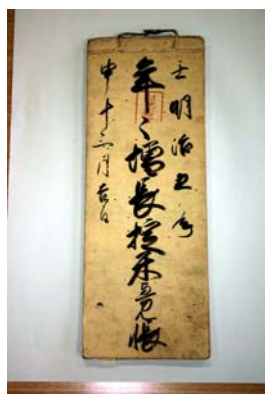 壬 明治五年
年々増長掟米覚帳
申 十二月吉日